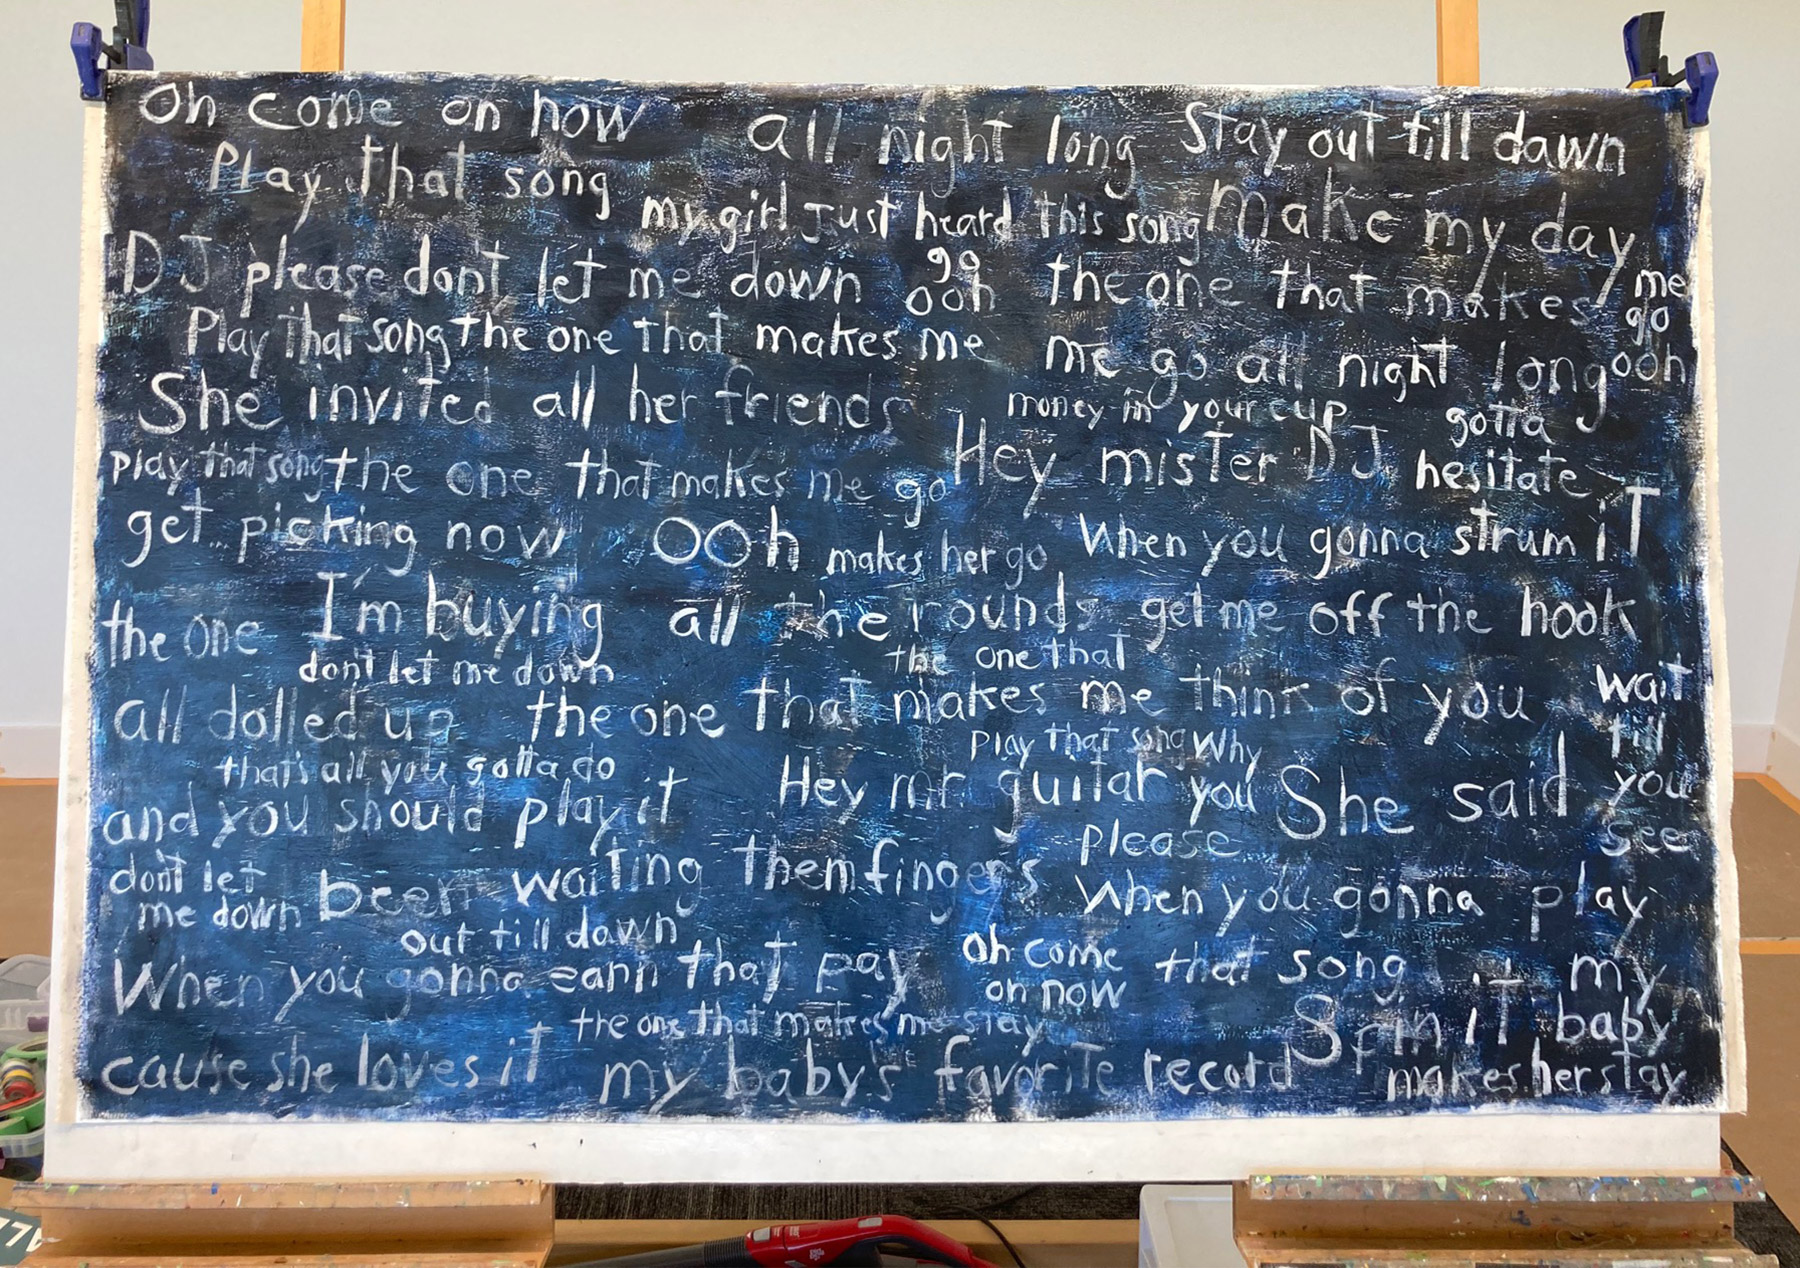 Oh come on now all night long Stay out till dawn
Play that song my girl just heard this song make my day
DJ please dont let me down go ooh the one that makes me go ooh
Play that song the one that makes me me go all night long
She invited all her friends money in your cup gotta
play that song the one that makes me go Hey mister DJ hesitate
get picking now OOh makes her go When you gonna strum iT
the one I'm buying all the rounds get me off the hook
don't let me down the one that
all dolled up the one that makes me think of you wait till you see
that's all you gotta do play that song Why
and you should play it Hey mr. guitar you She said
please
don't let me down been waiting them fingers When you gonna play
out till dawn
When you gonna earn that pay oh come on now that song my
the one that makes me stay Spin it baby
cause she loves it my baby's favorite record makes her stay